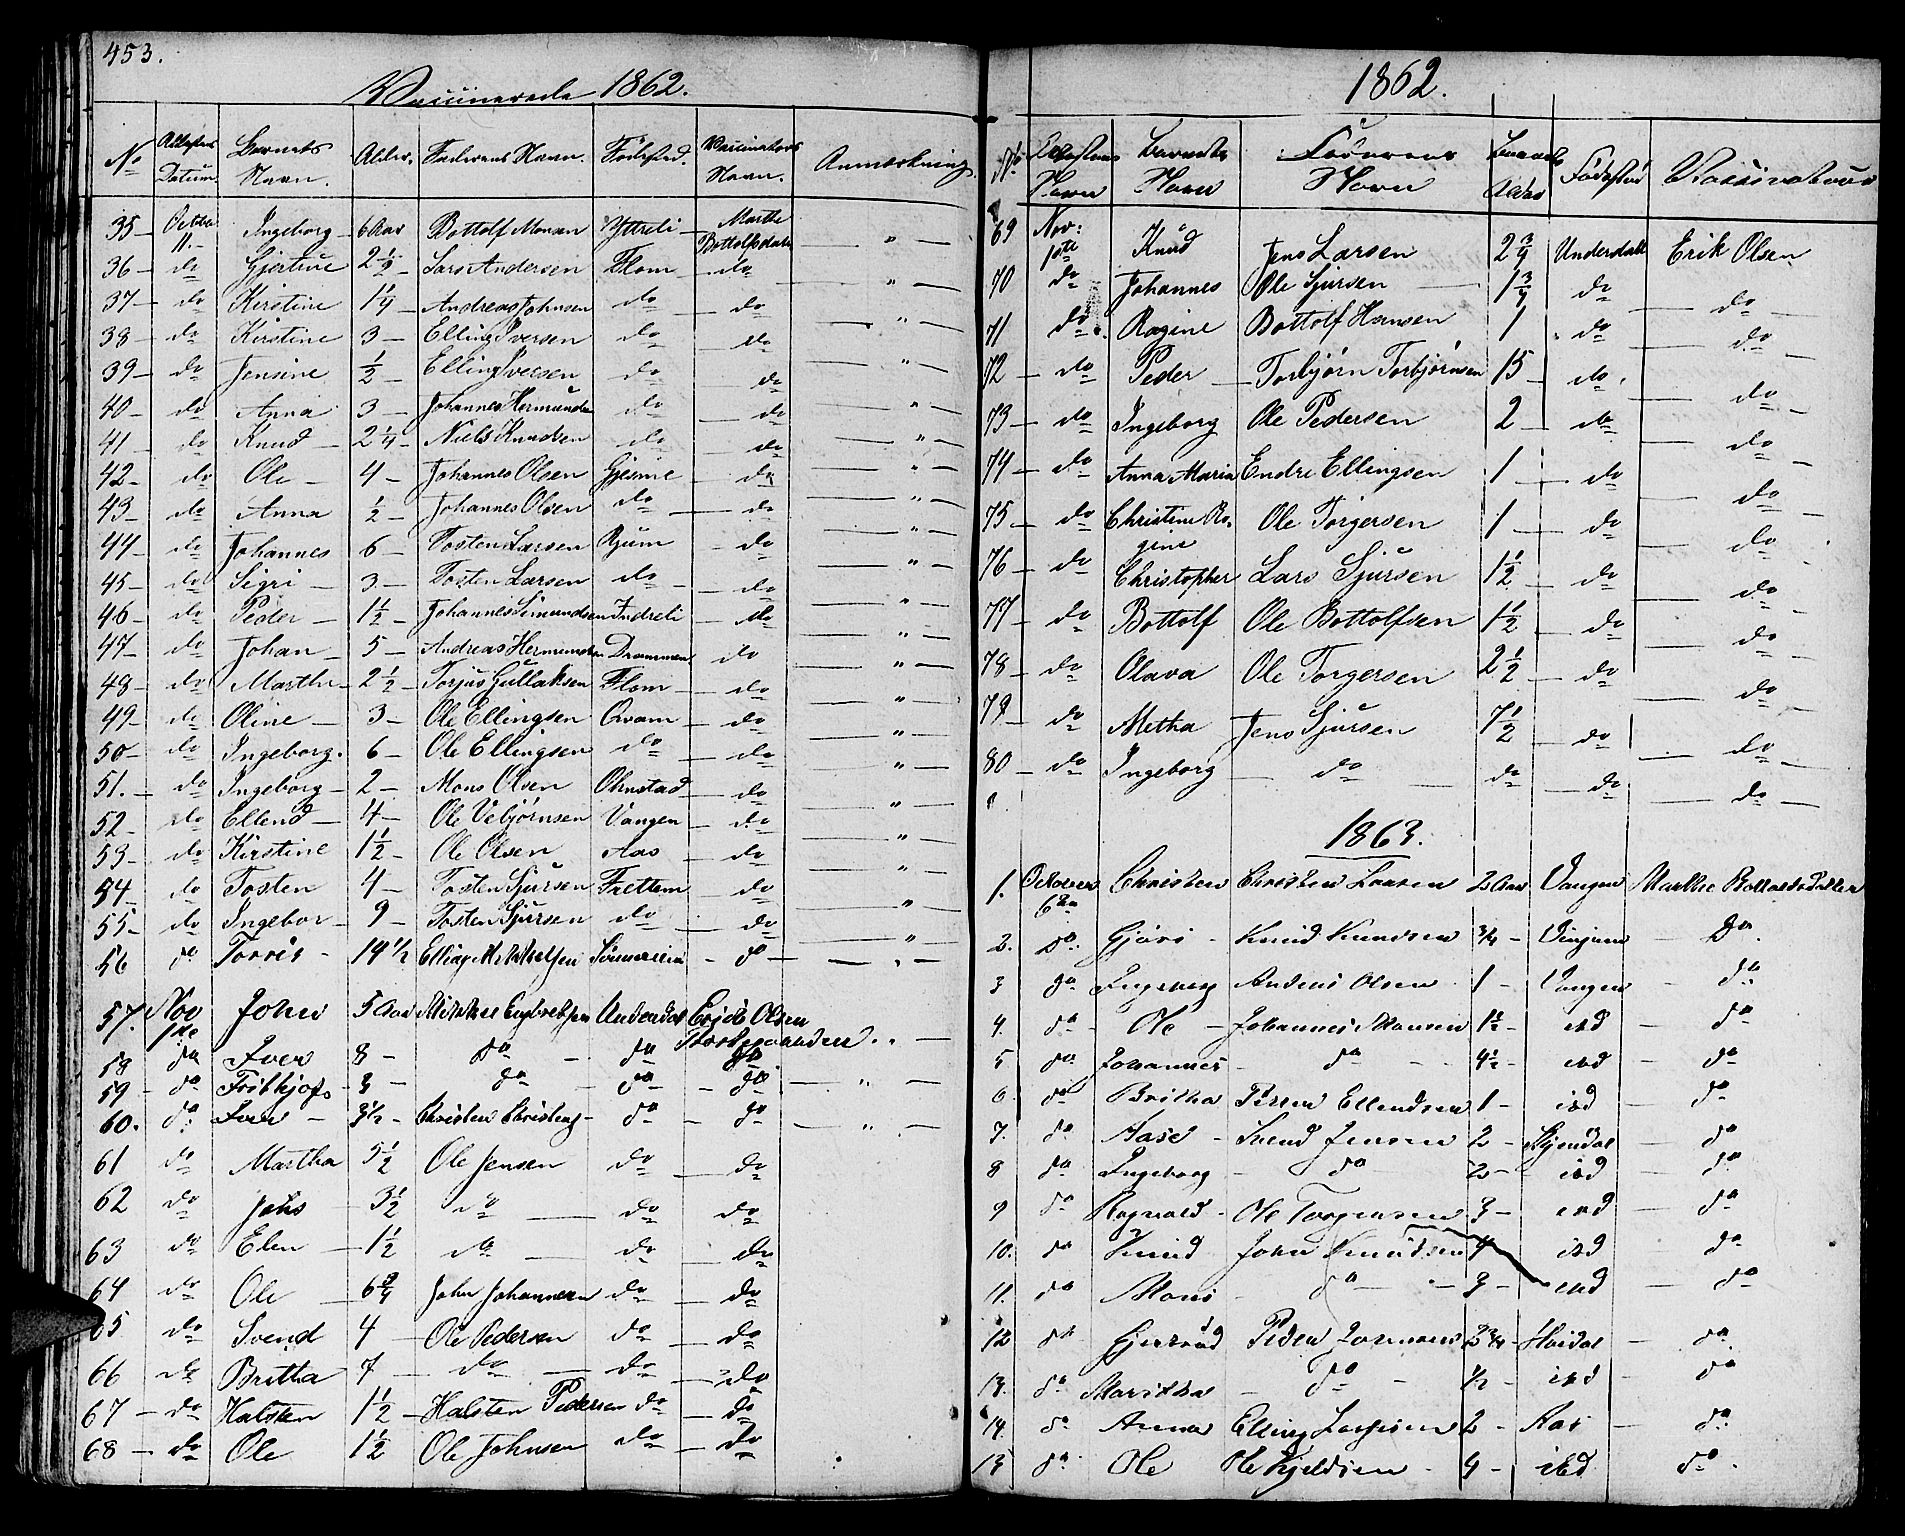 453.
Vaccinerede 1862.
No | Attestens Datum. | Barnets Navn. | Alder. | Faderens Navn. | Fødested. | Vaccinators Navn. | Anmærkning
35 | Octbr 11. | Ingeborg | 6 Aar | Bottolf Monsen | Ytreli | Marthe Bottolfsdatr | "
36 | do | Gjertrue | 2 1/2 | Lars Andersen | Flom | do | "
37 | do | Kirstine | 1 1/4 | Andreas Johnsen | do | do | "
38 | do | Kirstine | 3 | Elling Iversen | do | do | "
39 | do | Jensine | 1/2 | Elling Iversen | do | do | "
40 | do | Anna | 3 | Johannes Hermunds | do | do | "
41 | do | Knud | 2 1/4 | Niels Knudsen | do | do | "
42 | do | Ole | 4 | Johannes Olsen | Gjesme | do | "
43 | do | Anna | 1/2 | Johannes Olsen | do | do | "
44 | do | Johannes | 6 | Tosten Larsen | Rjum | do | "
45 | do | Sigri | 3 | Tosten Larsen | do | do | "
46 | do | Peder | 1 1/2 | Johannes Simundsen | Indreli | do | "
47 | do | Johan | 5 | Andreas Hermundsen | Drammen | do | "
48 | do | Marthe | 2 1/2 | Torjus Gullaksen | Flom | do | "
49 | do | Oline | 3 | Ole Ellingsen | Qvam | do | "
50 | do | Ingeborg | 6 | Ole Ellingsen | do | do | "
51 | do | Ingeborg | 2 | Mons Olsen | Ohnstad | do | "
52 | do | Ellend | 4 | Ole Vebjørnsen | Vangen | do | "
53 | do | Kirstine | 1 1/2 | Ole Olsen | Aas | do | "
54 | do | Tosten | 4 | Tosten Sjursen | Frettem | do | "
55 | do | Ingebor | 9 | Tosten Sjursen | do | do | "
56 | do | 14 1/2 | Elling | do | "
57. | Nov | John | 5 Aar | Underdal | Erik Olsen
58 | do | Iver | 8 | do | do | do
59 | do | Frithjof | 3 | do | do | do | "
60. | do | Iver | 3 1/2 | Christen | do | do | "
61 | do | Martha | 5 1/2 | Ole Jensen | do | do
62 | do | Jens | 3 1/2 | do | do | do
63 | do | Elen | 1 1/2 | do | do | do
64 | do | Ole | 6 3/4 | John Johannesen | do | do
65 | do | Svend | 4 | Ole Pedersen | do | do
66 | do | Britha | 7 | do | do | do
67 | do | Halsten | 1 1/2 | Halsten Pedersen | do | do
68 | do | Ole | 1 1/2 | Ole Johnsen | do | do
1862.
No | Barnets Navn | Faderens Navn | Barnets Alder | Fødested | Vaccinateur
69 | Nov: 1ste | Knud | Jens Larsen | 2 3/4 | Underdal | Erik Olsen
70 | do | Johannes | Ole Sjursen | 1 3/4 | do | do
71 | do | Ragine | Bottolf Hansen | 1 | do | do
72 | do | Peder | Torbjørn Torbjørnsen | 15 | do | do
73 | do | Ingeborg | Ole Pedersen | 2 | do | do
74 | do | Anna Maria | Endre Ellingsen | 1 | do | do
75 | do | Christine Ragine | Ole Torgersen | 1 | do | do
76 | do | Christopher | Lars Sjursen | 1 1/2 | do | do
77 | do | Bottolf | Ole Bottolfsen | 1 1/2 | do | do
78 | do | Olava | Ole Torgersen | 2 1/2 | do | do
79 | do | Metha | Jens Sjursen | 7 1/2 | do | do
80 | do | Ingeborg | do | do | do | do
1863.
1. | October 6te | Christen | Christen Larsen | 2 Aar | Vangen | Marthe Bottolfsdatter
2. | do | Gjøri | Knud Knudsen | 3/4 | Vinjum | do
3 | do | Ingeborg | Anders Olsen | 1 | Vangen | do
4. | do | Ole | Johannes Monsen | 1 1/2 | ibd | do
5 | do | Johannes | do | 4 1/2 | ibd | do
6. | do | Britha | Ellendsen | 1 | ibd | do
7. | do | Aase | Svend Jensen | 2 | Skjerdal | do
8 | do | Ingeborg | do | 2 | ibd | do
9 | do | Ragnvald | Ole Torgersen | 3 | ibd | do
10. | do | Knud | John Knudsen | 4 | ibd | do
11. | do | Mons | do | 3 | ibd | do
12 | do | Gjertrud | Peder | 2 3/4 | do
13. | do | Maritha | do | 1/2 | ibd | do
14. | do | Anna | Elling | 2 | Aas | do
15 | do | Ole | Ole Kjeldsen | 4 | ibd | do